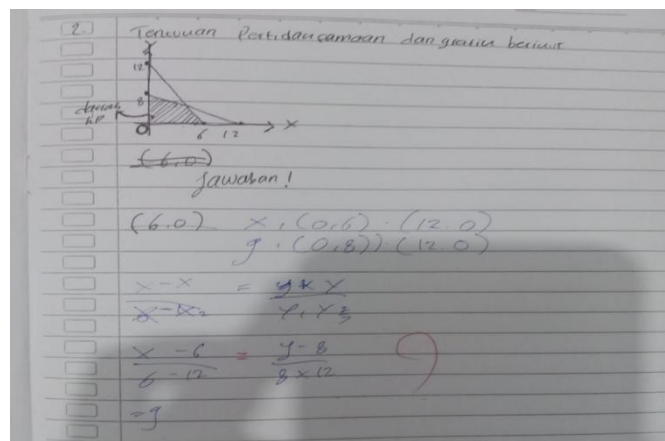 2. Tentukan Pertidaksamaan dari grafik berikut
Y
12
8
daerah
HP
O 6 12 X
(6,0)
Jawaban!
(6.0) x, (0,6) . (12.0)
y, (0,8)) (12.0)
x - x = y x y
x - x₂ y, y₂
x - 6 = y - 8
6 - 12 8 x 12
= 9